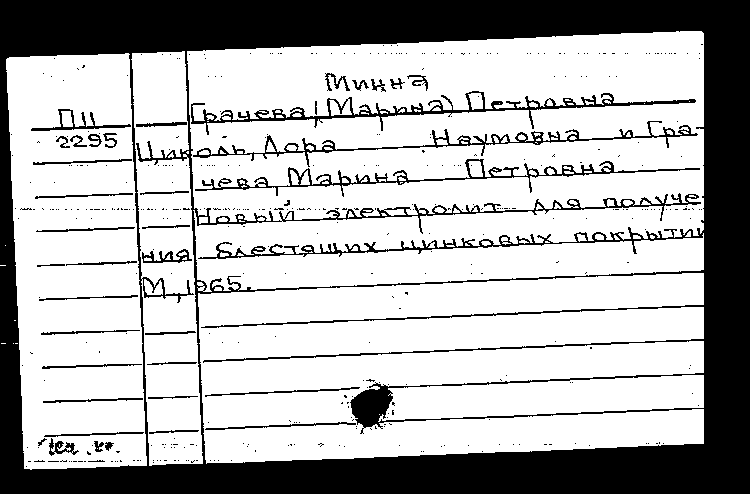 Минна
П11 Грачева, (Марина) Петровна
2295 Циколь, Дора Наумовна и Гра-
чева, Марина Петровна
Новый электролит для получе
ния блестящих цинковых покрытий
М., 1965.